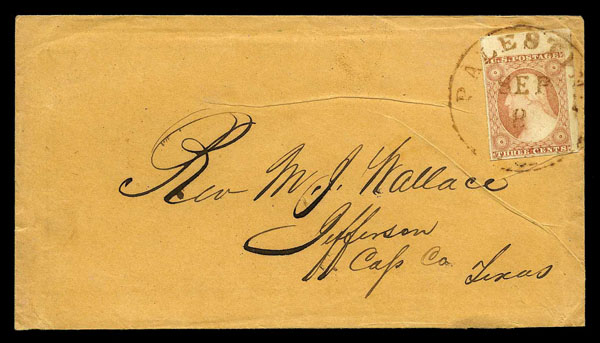 PALESTINE
U.S. POSTAGE
SEP
8
THREE CENTS
Rev M. J. Wallace
Jefferson
Cass Co.
Texas